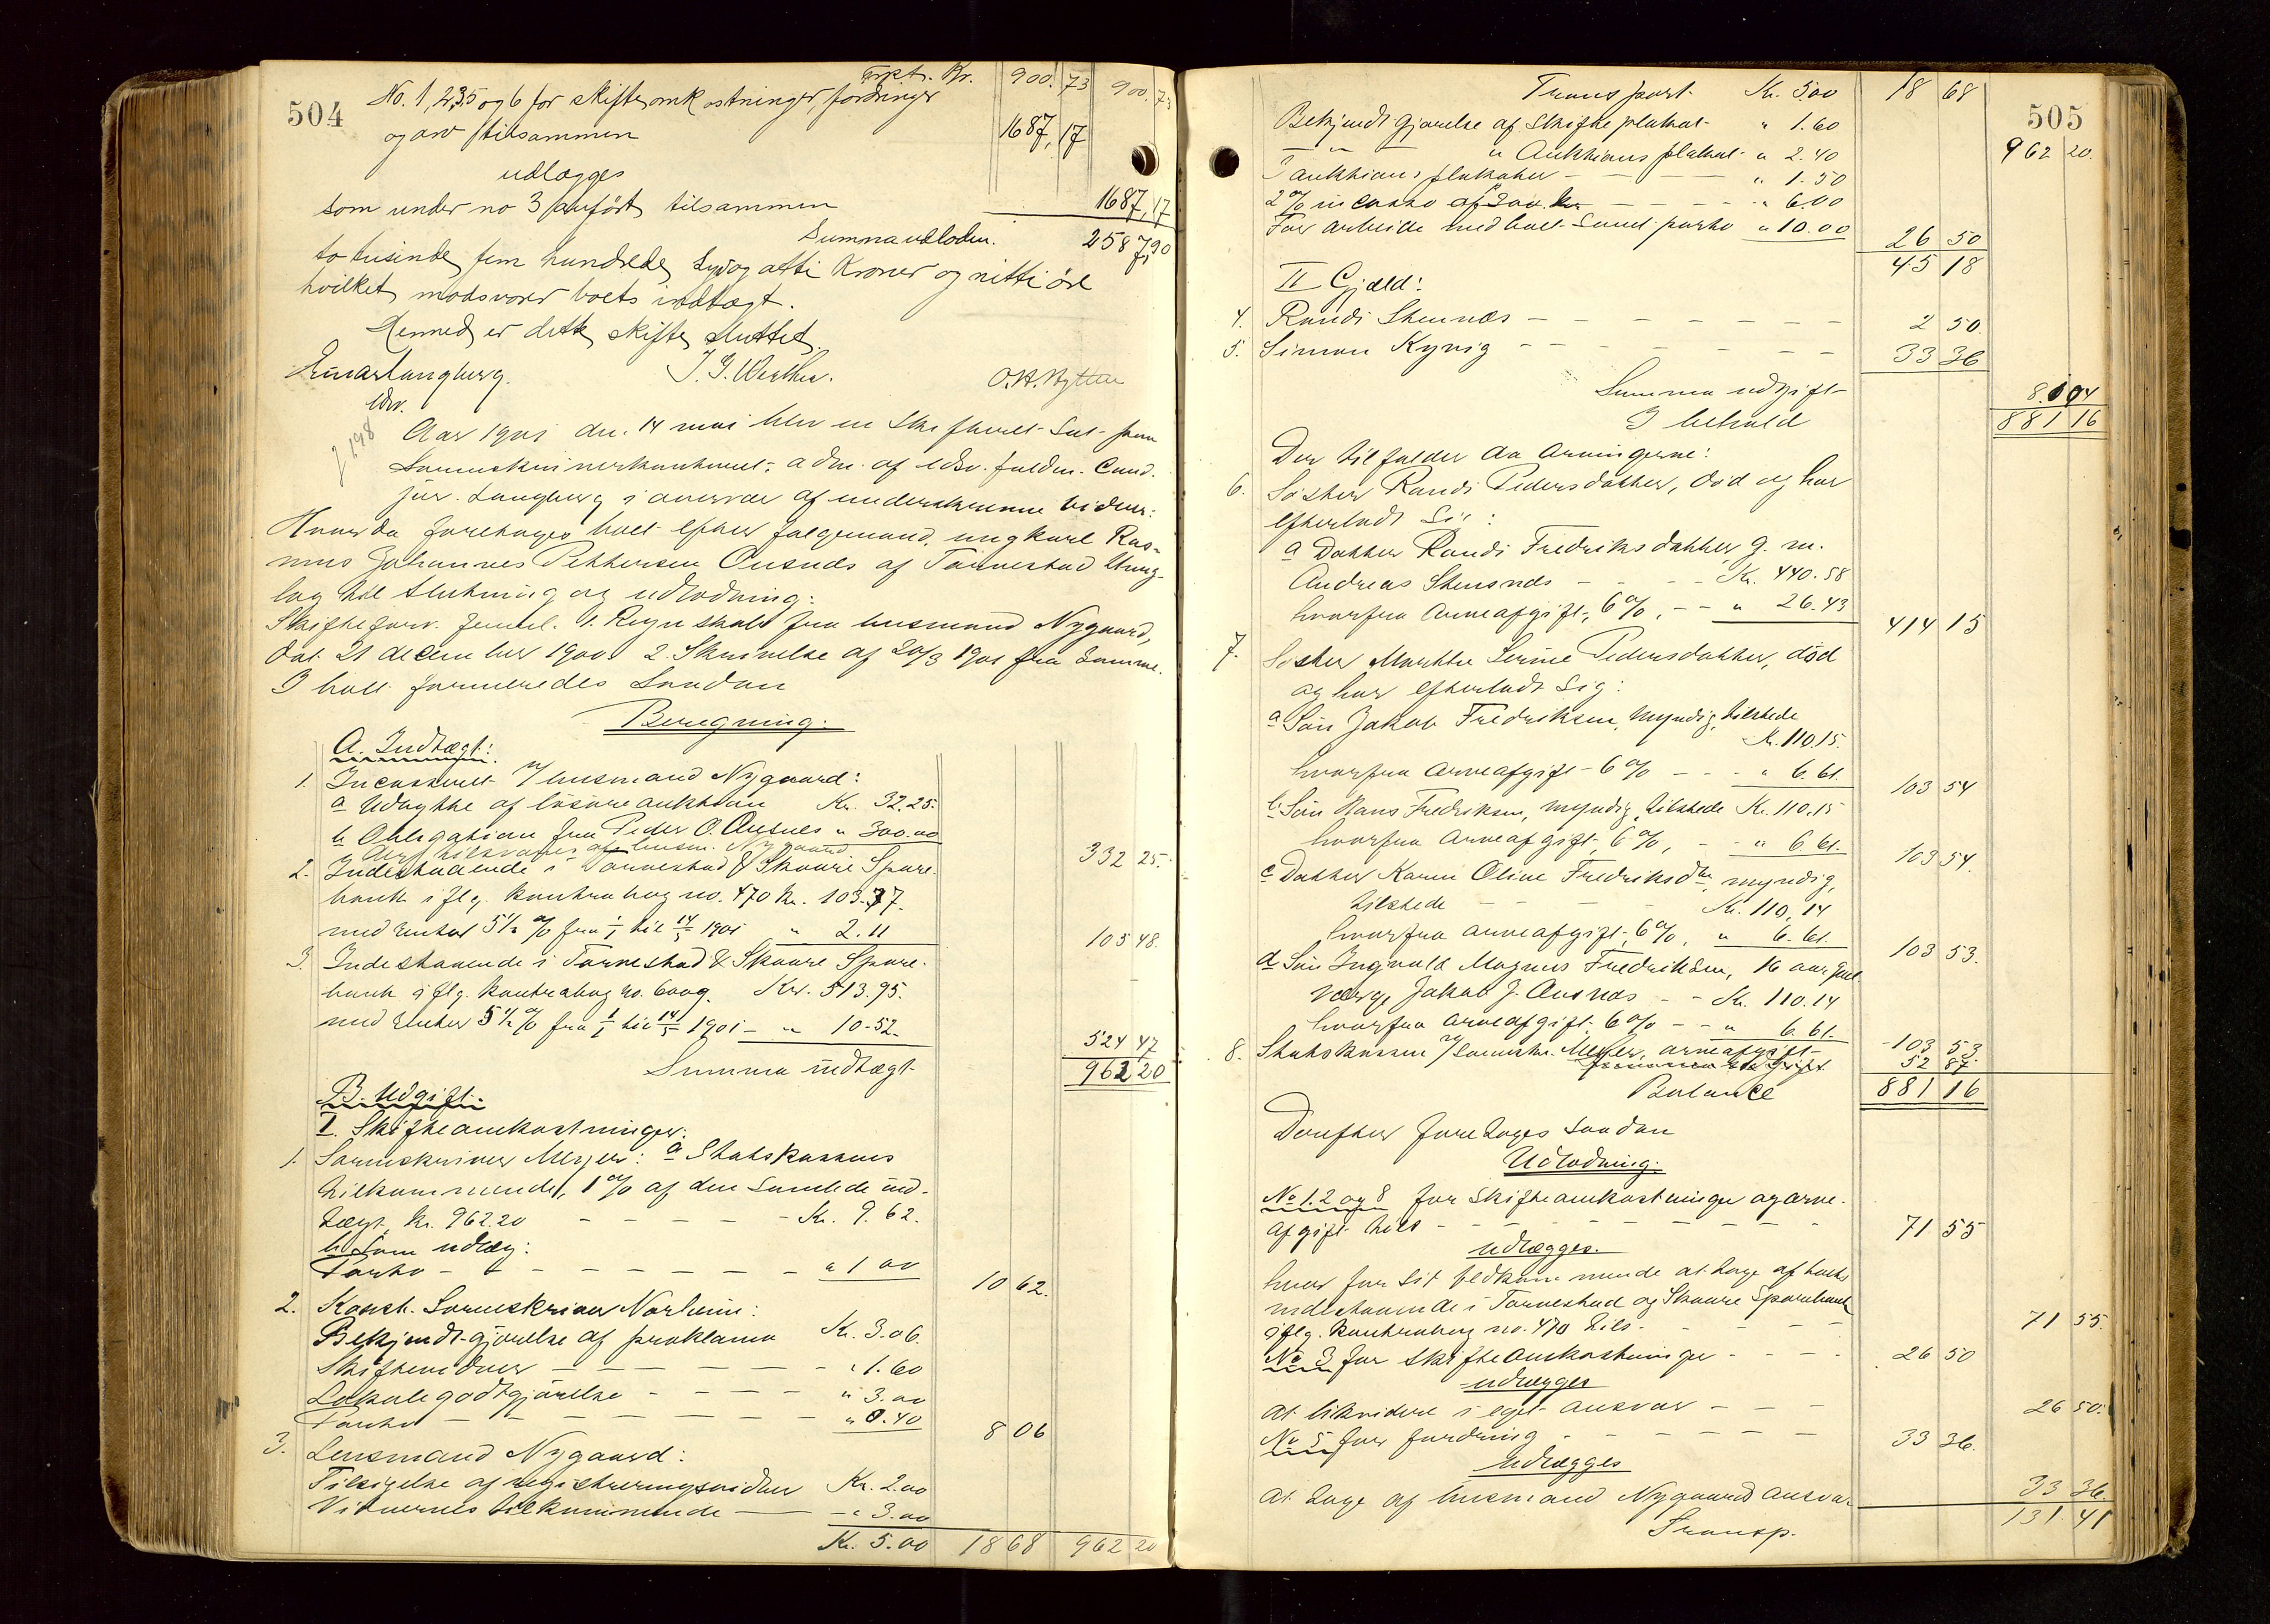 504
Trpt. Kr. 900.73 900.73
No. 1, 2, 3, 5 og 6 for skifteomkostninger, fordringer
og arv tilsammen 1687,17
udlægges
som under no 3 anført, tilsammen 1687,17
Summa udlodn. 2587,90
to tusinde fem hundrede syv og otti Kroner og nitti øre
hvilket modsvarer boets indtægt.
Hermed er dette skifte sluttet.
Einar Langberg. J. G. Wæthe. O. H. Hytten
cbv.
Aar 1901 den 14 mai blev en Skifteret Sat paa
Sorenskriverkontoret, adm. af edsv. fuldm. Cand.
jur. Langberg i overvær af underskrevne vidner:
Hvorda foretoges boet efter følgemand, ungkarl Ras-
mus Johannes Pettersen Ousnes af Torvestad thing-
lag til Slutning og udlodning:
Skifteforv. freml. 1. Regnskab fra lensmand Nygaard,
dat. 21 december 1900 2. Skrivelse af 20/3 1901 fra Samme.
I boet formeredes Saadan
Beregning:
A. Indtægt:
1. Incasseret v/ lensmand Nygaard:
a Udbytte af løsøre auktion Kr. 32.25
b Obligation fra Peder O. Ausnes " 300.00
der tilsvares af lensm. Nygaard 332 25.
2. Indestaaende i Torvestad & Skaare Spare-
bank iflg. kontrabog no. 470 Kr. 103.37.
med renter 5 1/2 % fra 1/1 til 14/5 1901 " 2.11 105 48.
3. Indestaaende i Torvestad & Skaare Spare-
bank iflg. kontrabog no. 6009. Kr. 513.95.
med renter 5 1/2 % fra 1/1 til 14/5 1901 - " 10.52. 524 47
Summa indtægt 962 20
B. Udgift:
I. Skifteomkostninger:
1. Sorenskriver Meyer: a Statskassens
tilkommende, 1 % af den Samlede ind-
tægt, Kr. 962.20 - - - - Kr. 9.62.
b Som udlæg:
Porto - - - - - - - " 1 00 10 62.
2. Konst. Sorenskriver Norheim:
Bekjendtgjørelse af proklama Kr. 3.06.
Skiftevidner - - - - - " 1.60
Lokalegodtgjørelse - - - - " 3.00
Porto - - - - - - " 0.40 8 06
3. Lensmand Nygaard:
Tilsigelse af registreringsvidner Kr. 2.00
Vidnernes tilkommende - " 3.00
Kr. 5.00 18 68 962 20
505
Transport Kr. 5.00 18 68 962 20.
Bekjendtgjørelse af Skifteplakat " 1.60
- " - " Auktionsplakat " 2.40
3 auktionsplakater - - - - " 1.50
2 % incasso af 300 kr. - - - " 6.00
For arbeide med boet Samt porto " 10.00 26 50
45 18
II Gjæld:
4. Randi Stensnes - - - - - - - 2 50.
5. Simon Kyvig - - - - - - 33 36
Summa udgift 81 04
I behold 881 16
Der tilfalder da Arvingerne:
6. Søster Randi Pedersdatter, død og har
efterladt Sig:
a Datter Randi Fredriksdatter g. m.
Andreas Stensnes - - - - Kr. 440.58
hvorfra Arveafgift, 6 %, - - " 26.43 414 15
7. Søster Marthe Serine Pedersdatter, død
og har efterladt Sig:
a Søn Jakob Fredriksen, myndig, tilstede
Kr. 110.15.
hvorfra arveafgift 6 % - - - " 6.61. 103 54
b Søn Hans Fredriksen, myndig, tilstede Kr. 110.15
hvorfra Arveafgift, 6 %, - - " 6.61. 103 54.
c Datter Karen Oline Fredriksdtr, myndig,
tilstede - - - - Kr. 110.14
hvorfra arveafgift, 6 %, " 6.61. 103 53.
d Søn Ingvald Magnus Fredriksen, 16 aar gml.
værge Jakob J. Ausnes - - Kr. 110.14
hvorfra Arveafgift, 6 % - - " 6.61. 103 53.
8. Statskassen v/ Sorenskr. Meyer, arveafgift 52 87.
Balance 881 16
Derefter foretoges Saadan
Udlodning:
No 1. 2 og 8 for Skifteomkostninger og arve-
afgift tils - - - - - - - - - 71 55
udlægges
hver for Sit vedkommende at tage af boets
indestaaende i Torvestad og Skaare Sparebank
iflg. kontrabog no. 470 tils. - - - - - 71 55.
No 3 for Skifteomkostninger - - - - 26 50
udlægges
at likvidere i eget ansvar - - - 26 50.
No 5 for fordring - - - - - - 33 36.
udlægges
at tage af lensmand Nygaards ansvar 33 36.
Transp. 131.41